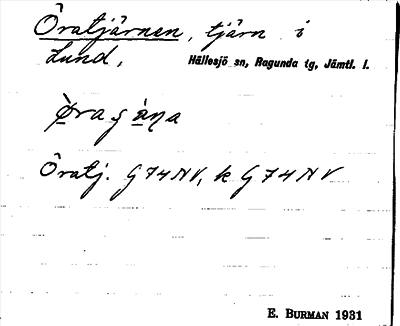 Öratjärnen, tjärn i
Lund,
Hällesjö sn, Ragunda tg, Jämtl. l.
Öratj. G74NV, k G74NV
E. BURMAN 1931